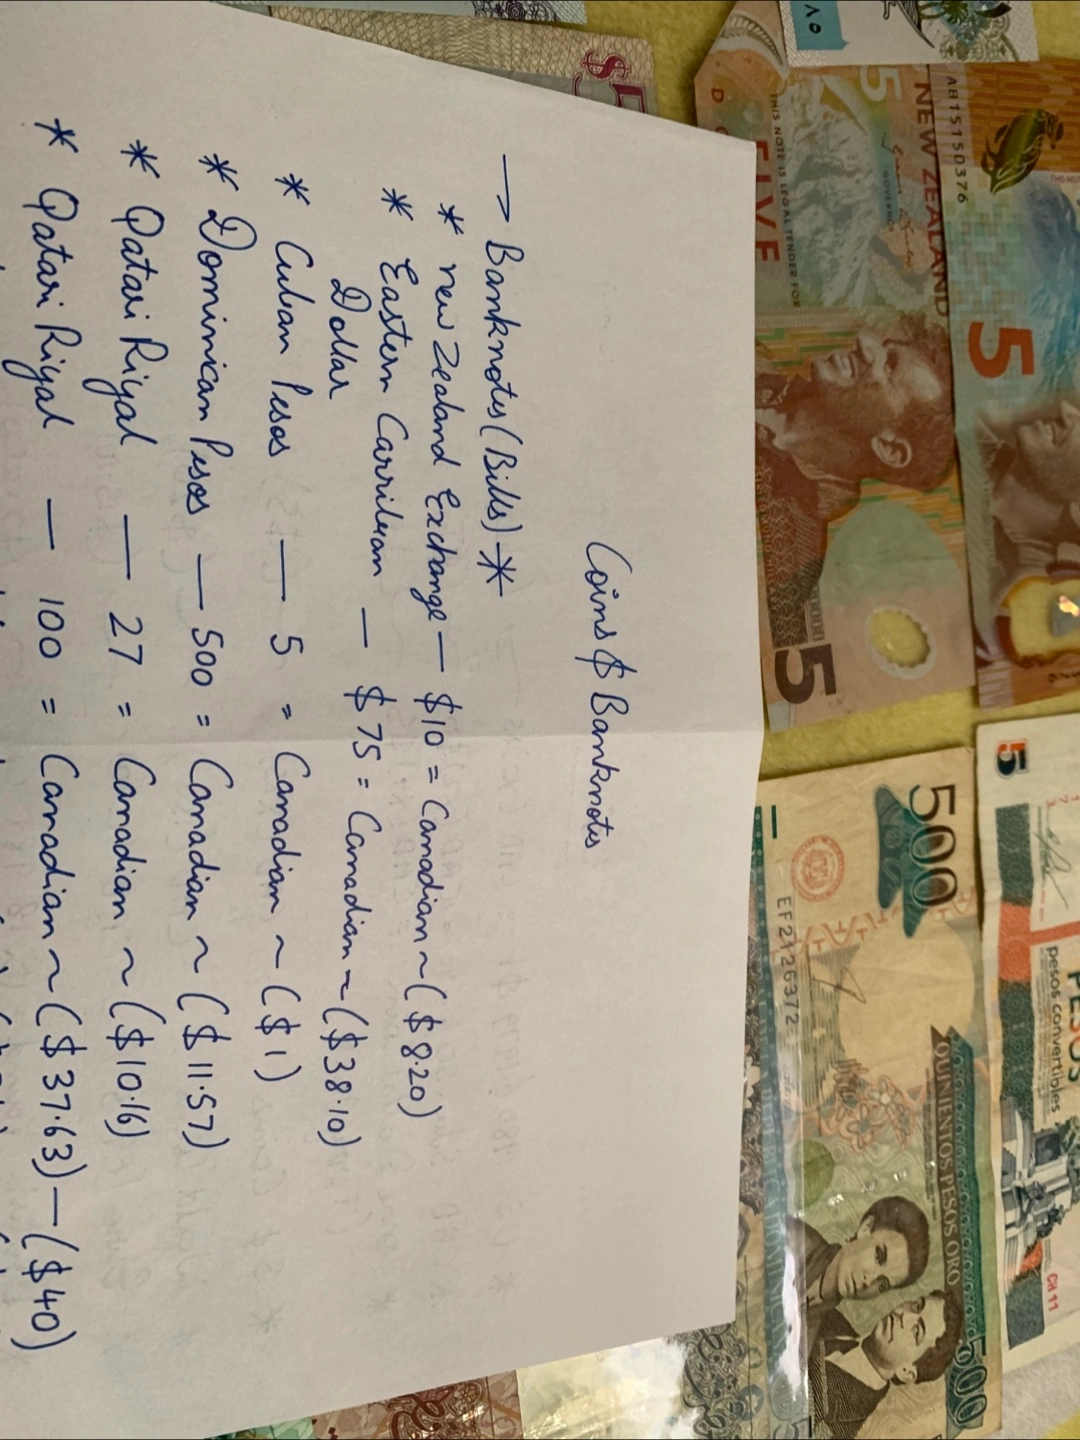 Coins $ Banknotes
→ Banknotes (Bills) *
* new Zealand Exchange — $10 = Canadian ~ ($8.20)
* Eastern Carribean — $75 = Canadian ~ ($38.10)
Dollar
* Cuban Pesos — 5 = Canadian ~ ($1)
* Dominican Pesos — 500 = Canadian ~ ($11.57)
* Qatari Riyal — 27 = Canadian ~ ($10.16)
* Qatari Riyal — 100 = Canadian ~ ($37.63) — ($40)
$5
5
NEW ZEALAND
THIS NOTE IS LEGAL TENDER FOR
GOVERNOR
FIVE
5
AB15150376
5
500
EF2126372
QUINIENTOS PESOS ORO
500
5
PESOS
pesos convertibles
CH 11
٥٨